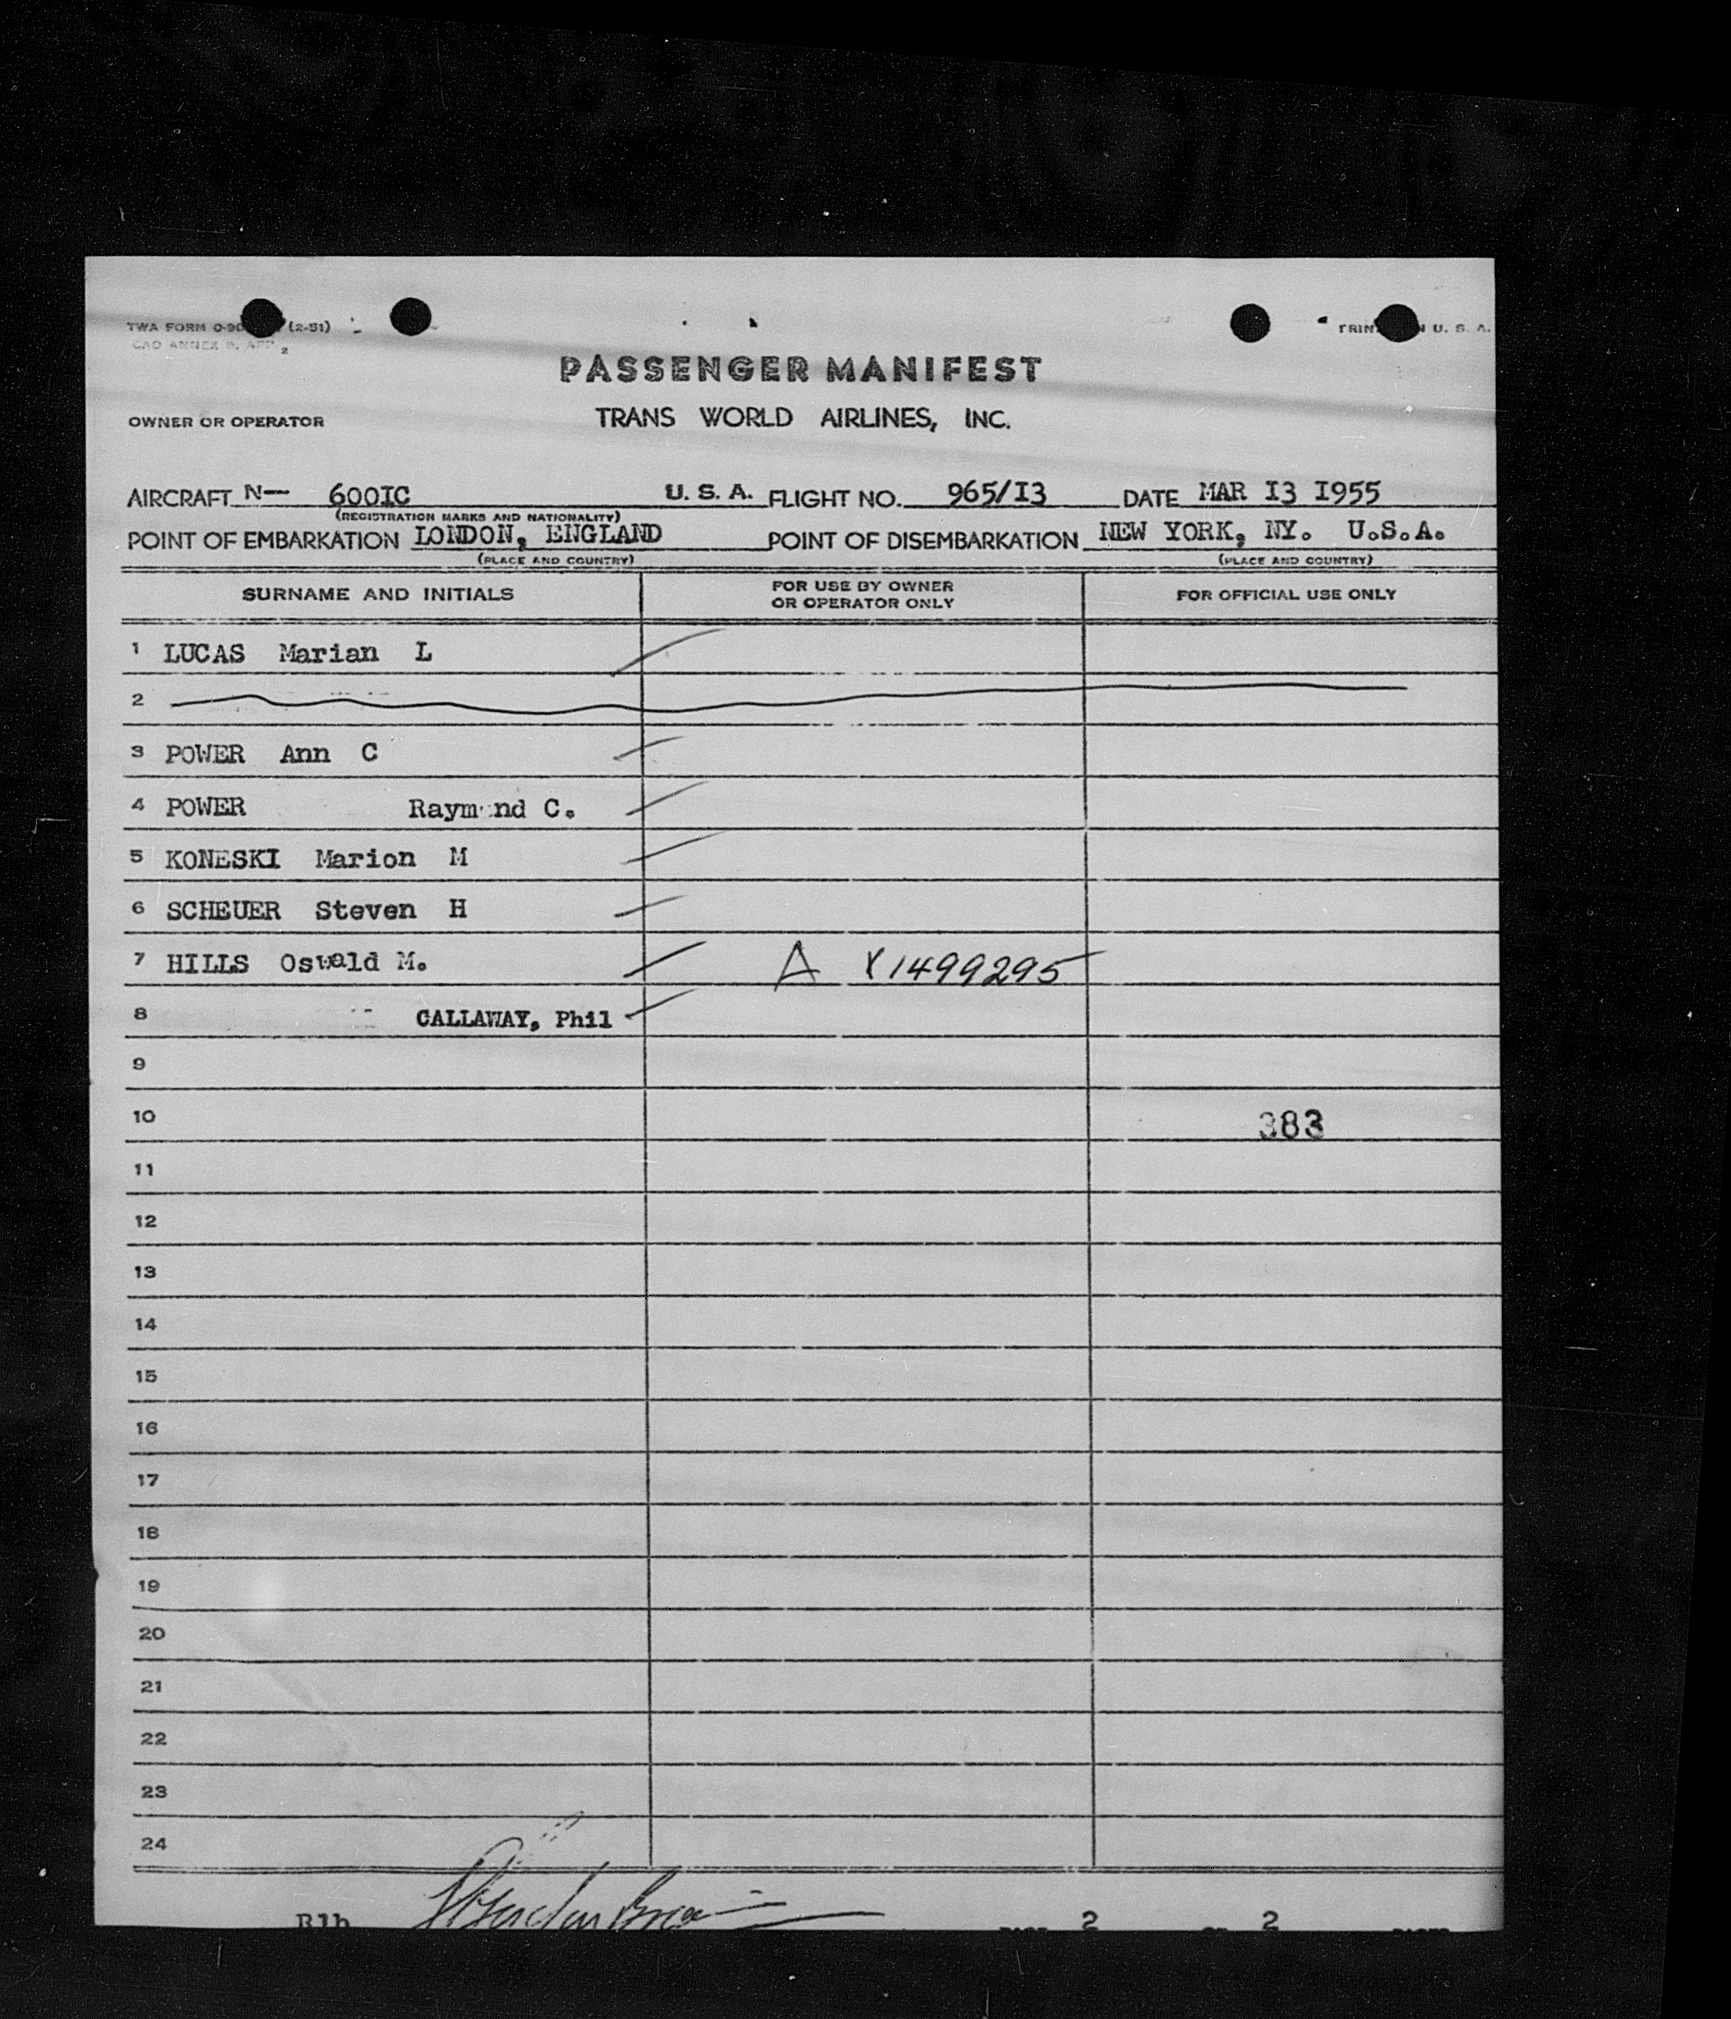 TWA FORM 0-90 (2-51)
CAO ANNEX 9, APP 2
PRINTED IN U. S. A.
PASSENGER MANIFEST
OWNER OR OPERATOR TRANS WORLD AIRLINES, INC.
AIRCRAFT N— 600IC U. S. A. FLIGHT NO. 965/I3 DATE MAR I3 I955
(REGISTRATION MARKS AND NATIONALITY)
POINT OF EMBARKATION LONDON, ENGLAND POINT OF DISEMBARKATION NEW YORK, NY. U.S.A.
(PLACE AND COUNTRY) (PLACE AND COUNTRY)
SURNAME AND INITIALS FOR USE BY OWNER OR OPERATOR ONLY FOR OFFICIAL USE ONLY
1 LUCAS Marian L
2
3 POWER Ann C
4 POWER Raymond C.
5 KONESKI Marion M
6 SCHEUER Steven H
7 HILLS Oswald M. A Y1499295
8 CALLAWAY, Phil
9
10 383
11
12
13
14
15
16
17
18
19
20
21
22
23
24
PAGE 2 OF 2 PAGES